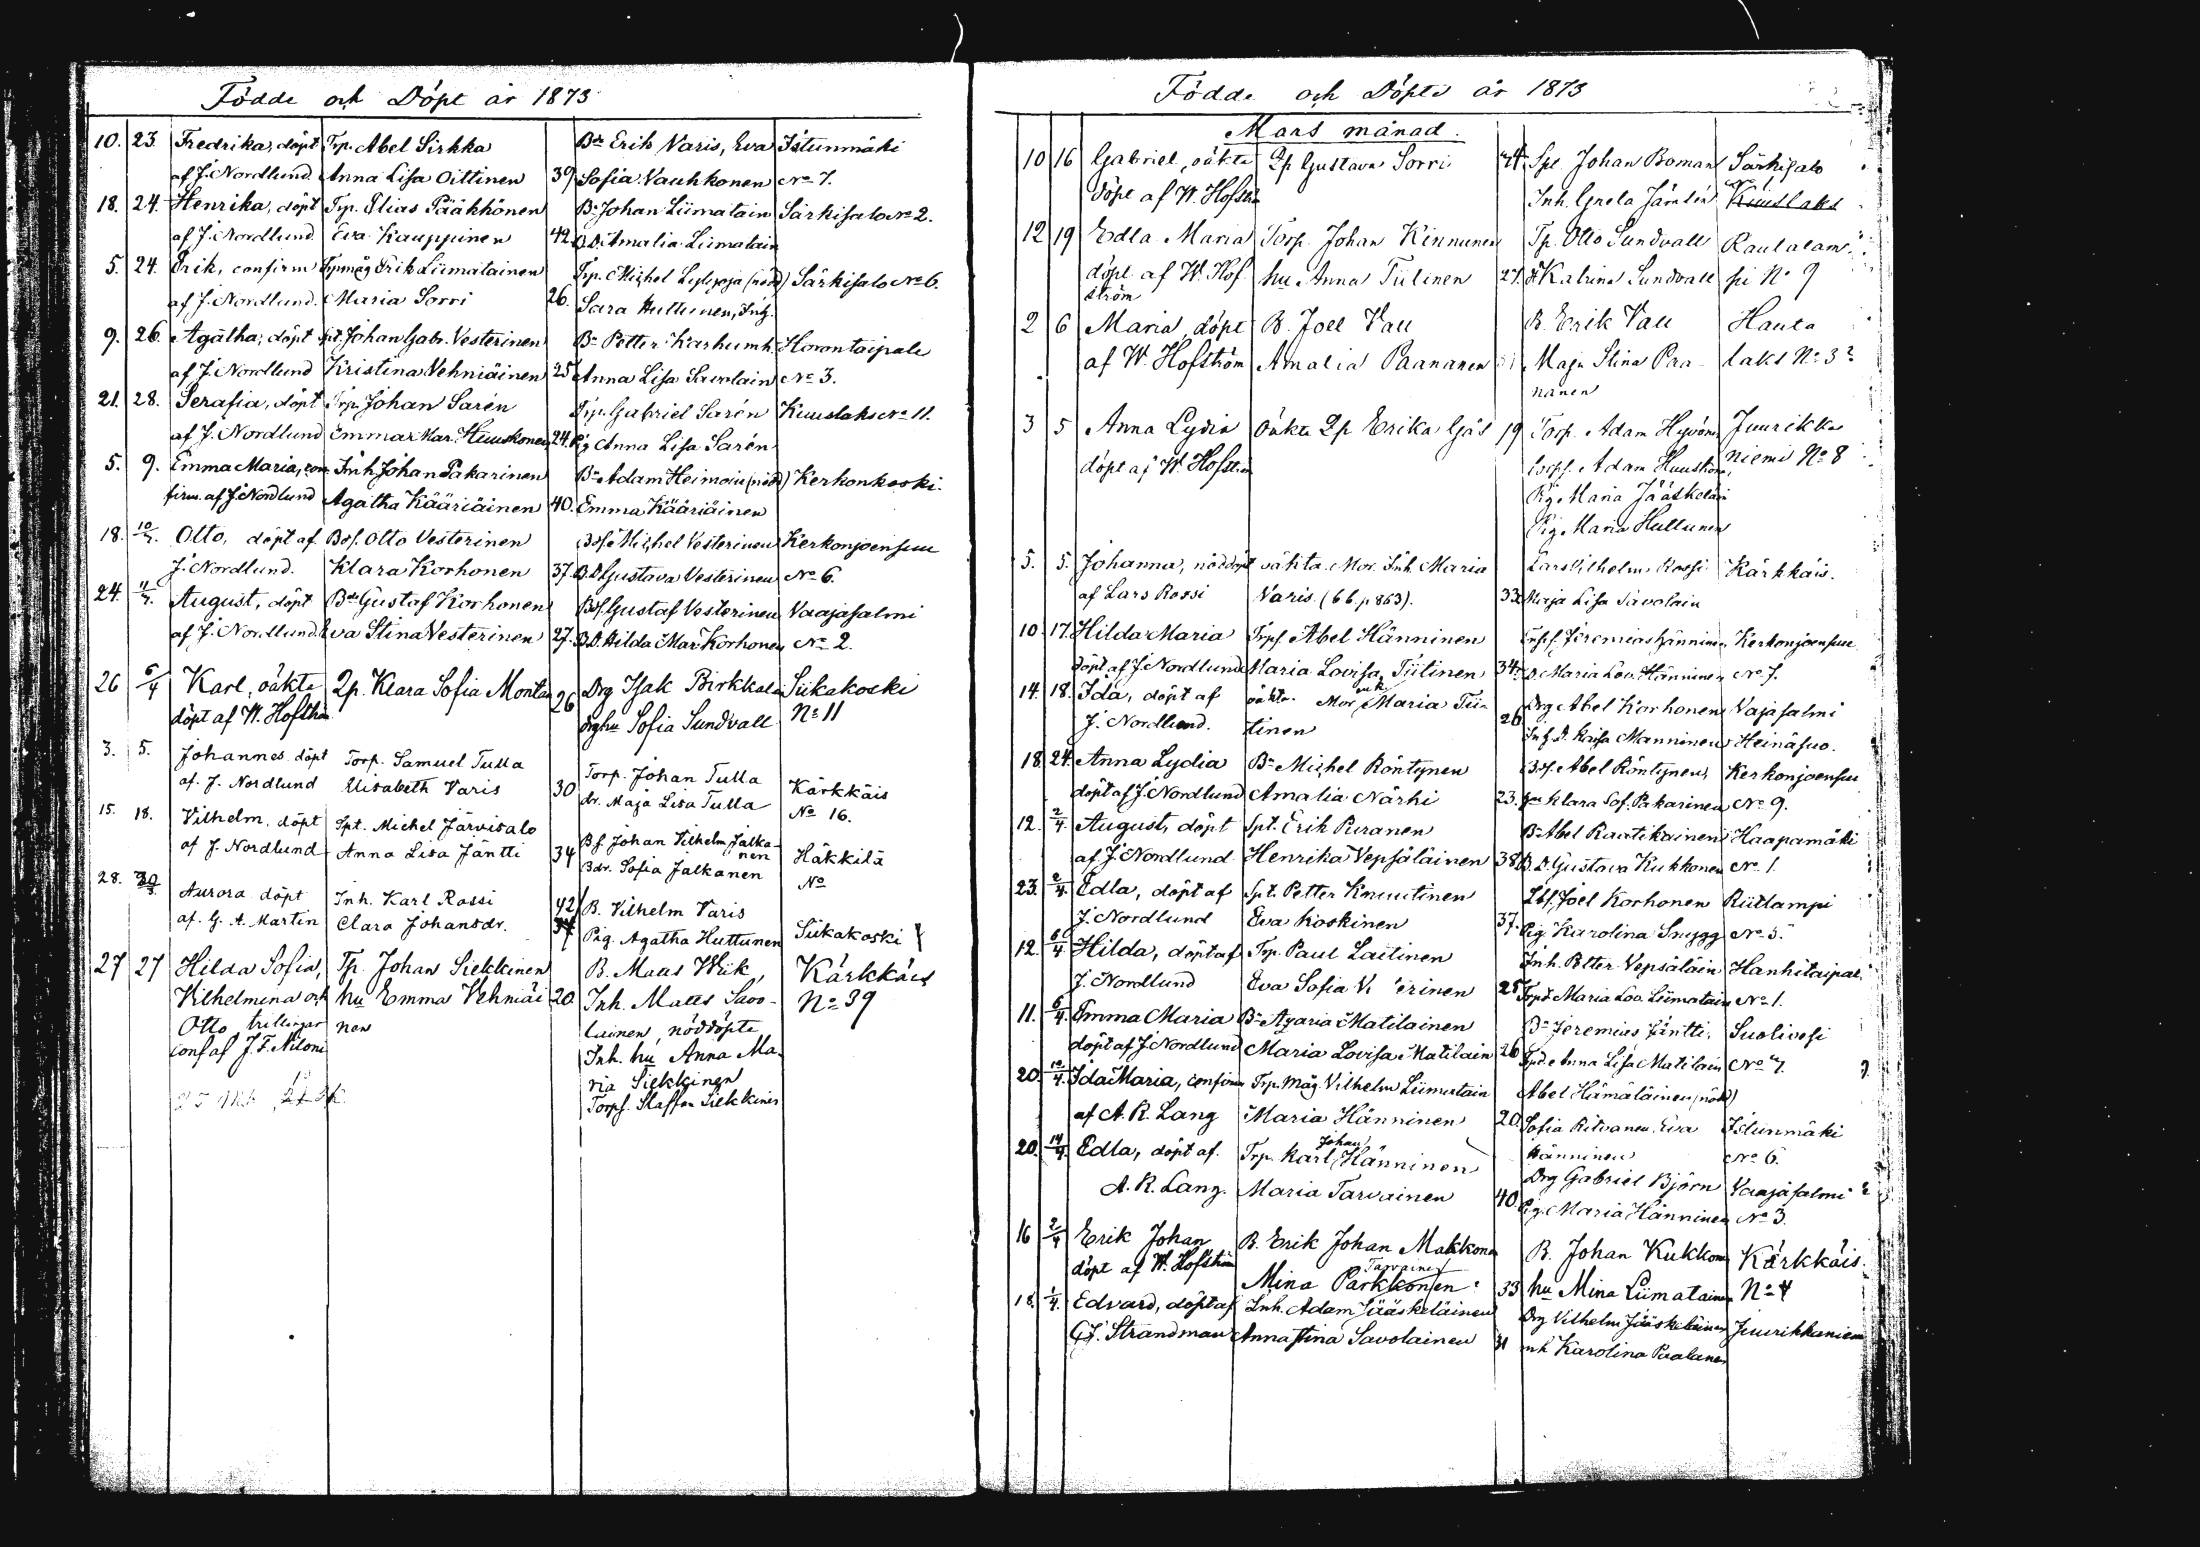 Födde och Döpt år 1873
10. 23. Fredrika, döpt Trp. Abel Sirkka Bdr Erik Varis, Eva Istunmäki
af J. Nordlund Anna Lisa Oittinen 39 Sofia Vauhkonen No 7.
18. 24. Henrika, döpt Trp. Elias Pääkkönen Bn Johan Liimatain Särkisalo No 2.
af J. Nordlund. Eva Kauppinen 42. B.D. Amalia Liimatain
5. 24. Erik, confirm Trpmåg Erik Liimatainen Trp. Michel (nöd) Särkisalo No 6.
af J. Nordlund. Maria Sorri 26. Sara Huttunen, Inh.
9. 26. Agatha, döpt Spt. Johan Gabr. Vesterinen Bn Petter Karhumk. Horontaipale
af J. Nordlund Kristina Vehniäinen 25 Anna Lisa Savolain No 3.
21. 28. Serafia, döpt Trp. Johan Sarén Trp. Gabriel Sarén Kuuslaks No 11.
af J. Nordlund Emma Mar. Huuskonen 24. Pig Anna Lisa Sarén
5. 9. Emma Maria, con Inh. Johan Pakarinen Bn Adam Heimoin (nöd) Kerkonkoski.
firm. af J. Nordlund Agatha Kääriäinen 40. Emma Kääriäinen
18. 10/3. Otto, döpt af Bdf. Otto Vesterinen Bdf. Michel Vesterinen Kerkonjoensuu
J. Nordlund. Klara Korhonen 37. B.D. Gustava Vesterinen No 6.
24. 11/3. August, döpt Bdr Gustaf Korhonen Bdf. Gustaf Vesterinen Vaajasalmi
af J. Nordlund. Eva Stina Vesterinen 27. B.D. Hilda Mar. Korhonen No 2.
26 6/4 Karl, oäkta Qp. Klara Sofia Montan 26 Drg Isak Pirkkala Siikakoski
döpt af W. Hofström drghu Sofia Sundvall No 11
3. 5. Johannes döpt Torp. Samuel Tulla Torp. Johan Tulla Kärkkäis
af. J. Nordlund Elisabeth Varis 30 dr. Maja Lisa Tulla No 16.
15. 18. Vilhelm, döpt Spt. Michel Järvisalo Bf. Johan Vilhelm Jalka-
nen Häkkilä
af J. Nordlund Anna Lisa Jäntti 34 Bdr. Sofia Jalkanen No
28. 30/3. Aurora döpt Inh. Karl Rossi 42 B. Vilhelm Varis
af. G. A. Martin Clara Johansdr. 37 Pig. Agatha Huttunen Siikakoski
27 27 Hilda Sofia, Tp. Johan Siekkinen B. Maus Wiik, Kärkkäis
Vilhelmina och hu Emma Vehniäi 20 Inh. Matts Savo- No 39
Otto trillingar nen lainen, nöddöpte
conf af J. F. Niloni Inh. hu Anna Ma-
ria Siekkinen
Torpf. Staffan Siekkinen
Födde och Döpte år 1873
Mars månad.
10 16 Gabriel, oäkta Qp Gustava Sorri 24. Spt. Johan Boman Särkisalo
döpt af W. Hofström Inh. Greta Jämtén Kuuslaks
12 19 Edla Maria Torp. Johan Kinnunen Tp. Otto Sundvall Rautalam-
döpt af W. Hof hu Anna Tiitinen 27. Katrina Sundvall pi No 9
ström
2 6 Maria, döpt B. Joel Vall B. Erik Vall Hanta
af W. Hofström Amalia Paananen Maja Stina Paa- laks No 3
nanen
3 5 Anna Lydia Oäkta Qp Erika Gjös 19 Torp. Adam Hyvönen Juurikka
döpt af W. Hofström torpf. Adam Huuskonen, niemi No 8
Pig. Maria Jääskeläin
Pig. Maria Hultunen
5. 5. Johanna, nöddöpt oäkta. Mor. Inh. Maria Lars Vilhelm Rossi Kärkkäis.
af Lars Rossi Varis. (66. p 863). 33. Maja Lisa Savolain
10. 17. Hilda Maria Trpf. Abel Hänninen Jeremias Hänninen Kerkonjoensuu
döpt af J. Nordlund Maria Lovisa Tiitinen 34. Maria Lov. Hänninen No 7.
14. 18. Ida, döpt af oäkta. Mor Maria Tii- Drg Abel Korhonen Vajasalmi
J. Nordlund. tinen 26. Kaisa Manninen Heinäsuo.
18. 24. Anna Lydia Bn Michel Röntynen Bdf. Abel Röntynen, Kerkonjoensuu
döpt af J. Nordlund Amalia Närhi 23. Klara Sof. Pakarinen No 9.
12. 2/4. August, döpt Spt. Erik Puranen Bn Abel Rautikainen Haapamäki
af J. Nordlund Henrika Vepsäläinen 38. B.D. Gustava Kukkonen No 1.
23. 2/4. Edla, döpt af Spt. Petter Knuutinen Joel Korhonen Riitlampi
J. Nordlund Eva Koskinen 37. Pig Karolina Snygg No 5.
12. 6/4. Hilda, döpt af Trp. Paul Laitinen Inh. Petter Vepsäläin Hanhitaipal.
J. Nordlund Eva Sofia V erinen 25 Maria Lov. Liimatain No 1.
11. 6/4. Emma Maria Bn Agaria Matilainen Bn Jeremias Jäntti, Suolivesi
döpt af J. Nordlund Maria Lovisa Matilain 26 Anna Lisa Matilain No 7.
20. 10/4. Ida Maria, confirm Trp. Måg. Vilhelm Liimatain Abel Hämäläinen (nöd)
af A. R. Lang Maria Hänninen 20. Sofia Ritvanen. Eva Istunmäki
20. 14/4. Edla, döpt af. Trp. Karl Johan Hänninen Hänninen No 6.
A. R. Lang. Maria Tarvainen 40. Drg Gabriel Björn Vaajasalmi
Pig. Maria Hänninen No 3.
16 2/4 Erik Johan B. Erik Johan Makkonen B. Johan Kukkonen Kärkkäis.
döpt af W. Hofström Mina Parkkonen Tarvainen 33 hu Mina Liimatainen No 4
18. 1/4. Edvard, döpt af Inh. Adam Jääskeläinen Drg Vilhelm Jääskeläinen Juurikkaniemi
G. J. Strandman Anna Stina Savolainen 31 inh Karolina Paalanen